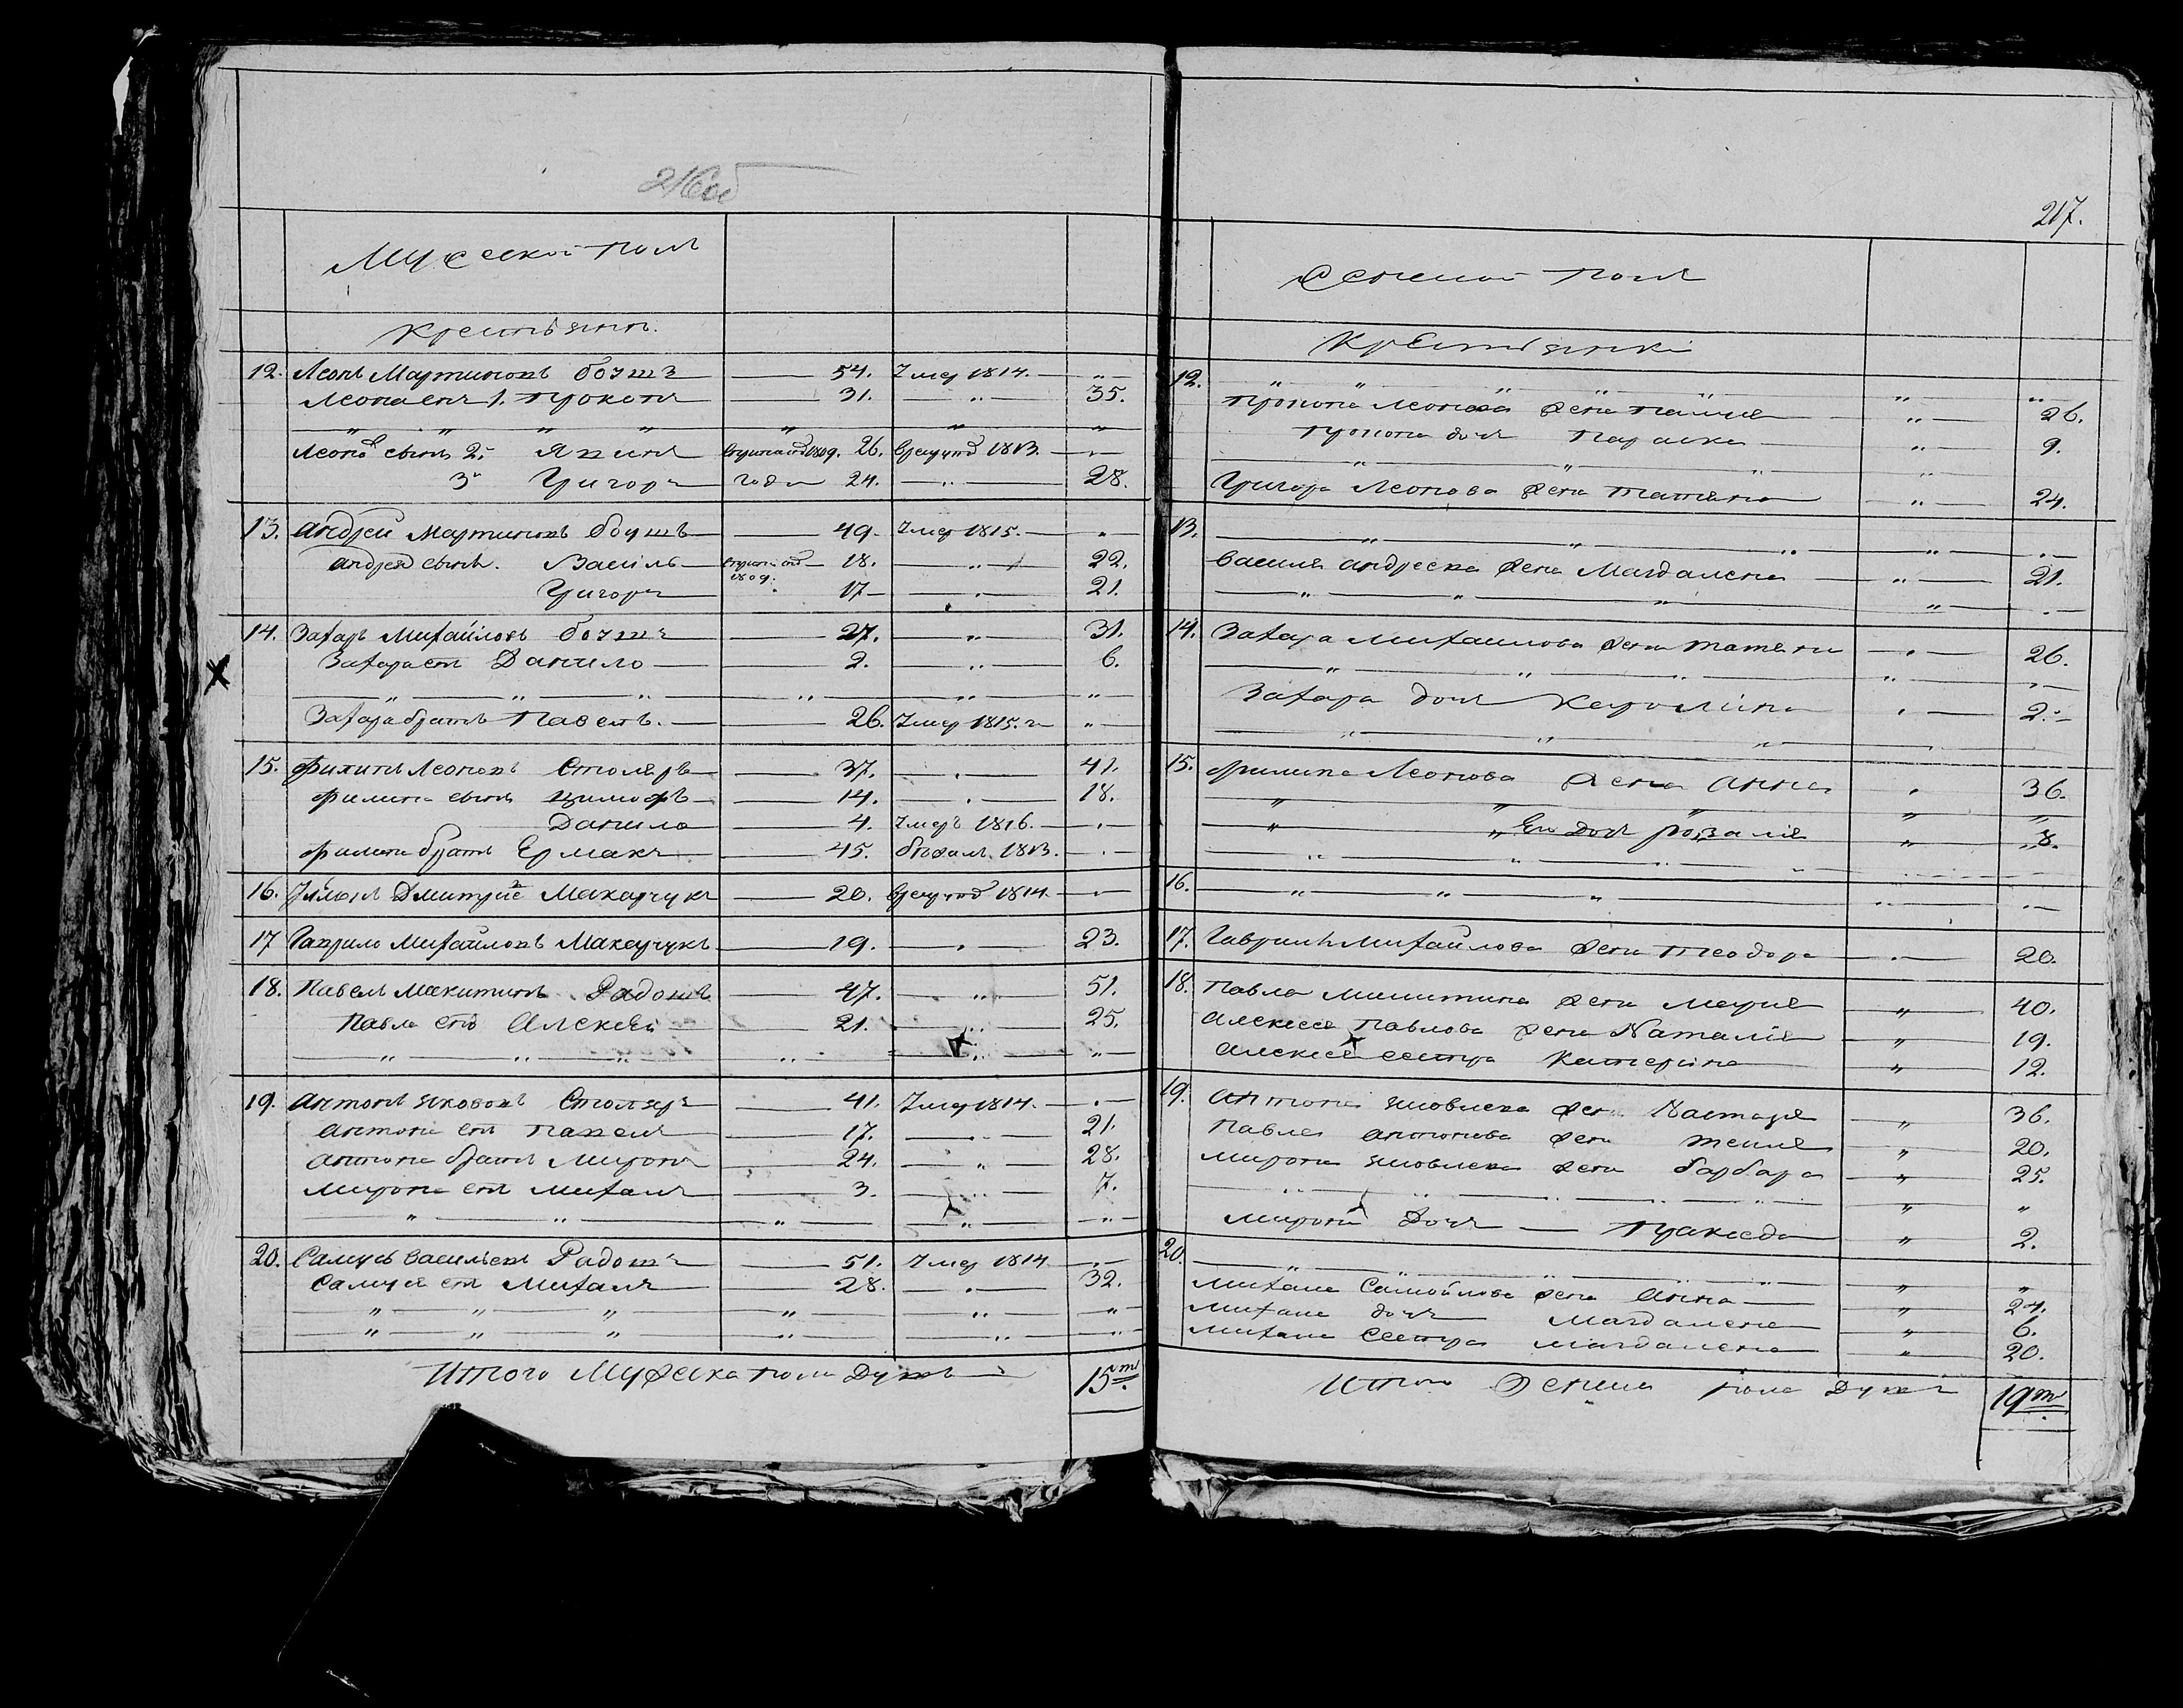 216об
Мужеской полъ
Крестьяне.
12. Леонъ Мартиновъ 54. Умер 1814.
Леона сынъ 1. Прокопъ 31. 35.
Леонов сынъ 2. 26. 1813.
3й Григоръ года 24. 28.
13. Андрей Мартиновъ 49. Умер 1815.
Андрея сынъ. Василь 18. 22.
1809.
Григоръ 17 21.
14. Захаръ Михайловъ 27. 31.
Захара снъ Данило 2. 6.
Захара братъ Павелъ. 26. Умер 1815. г.
15. Филипъ Леоновъ Столяръ 37. 41.
Филипа сынъ Цимофъ 14. 18.
Данило 4. Умеръ 1816.
Филипа братъ Ермакъ 45. бежалъ 1813.
16. Дмитрие Макарчукъ 20. 1814.
17 Гаврило Михайловъ Макарчукъ 19. 23.
18. Павелъ Микитинъ Радошъ 47. 51.
Павла снъ Алексей 21. 25.
19. Антонъ Якововъ Столяръ 41. Умер 1814.
Антона снъ Павелъ 17. 21.
Антона братъ Миронъ 24. 28.
Мирона снъ Михалъ 3. 7.
20. Самусь Васильевъ Радошъ 51. Умер 1814
Самуся снъ Михалъ 28. 32.
Итого Мужеска пола Душъ 15ть
217.
Женской полъ
Крестьянки
12.
Прокопа Леонова жена 26.
Прокопа дочь Параска 9.
Григора Леонова жена Татяна 24.
13.
Василя Андреева жена Магдалена 21.
14. Захара Михайлова жена Татяна 26.
Захара дочь Каролина 2.
15. Филипа Леонова жена Анна 36.
Его дочь Розалия 8.
16.
17. Гаврила Михайлова жена Теодора 20.
18. Павла Микитина жена Мария 40.
Алексея Павлова жена Наталия 19.
Алексея сестра Катерина 12.
19. Антона Яковлева жена Настазя 36.
Павла Антонова жена 20.
Мирона Яковлева жена Барбара 25.
Мирона Дочь Пракседа 2.
20.
Михала Самойлова жена Анна 24.
Михала дочь Магдалена 6.
Михала Сестра Магдалена 20.
Итого Женска пола Душъ 19ть